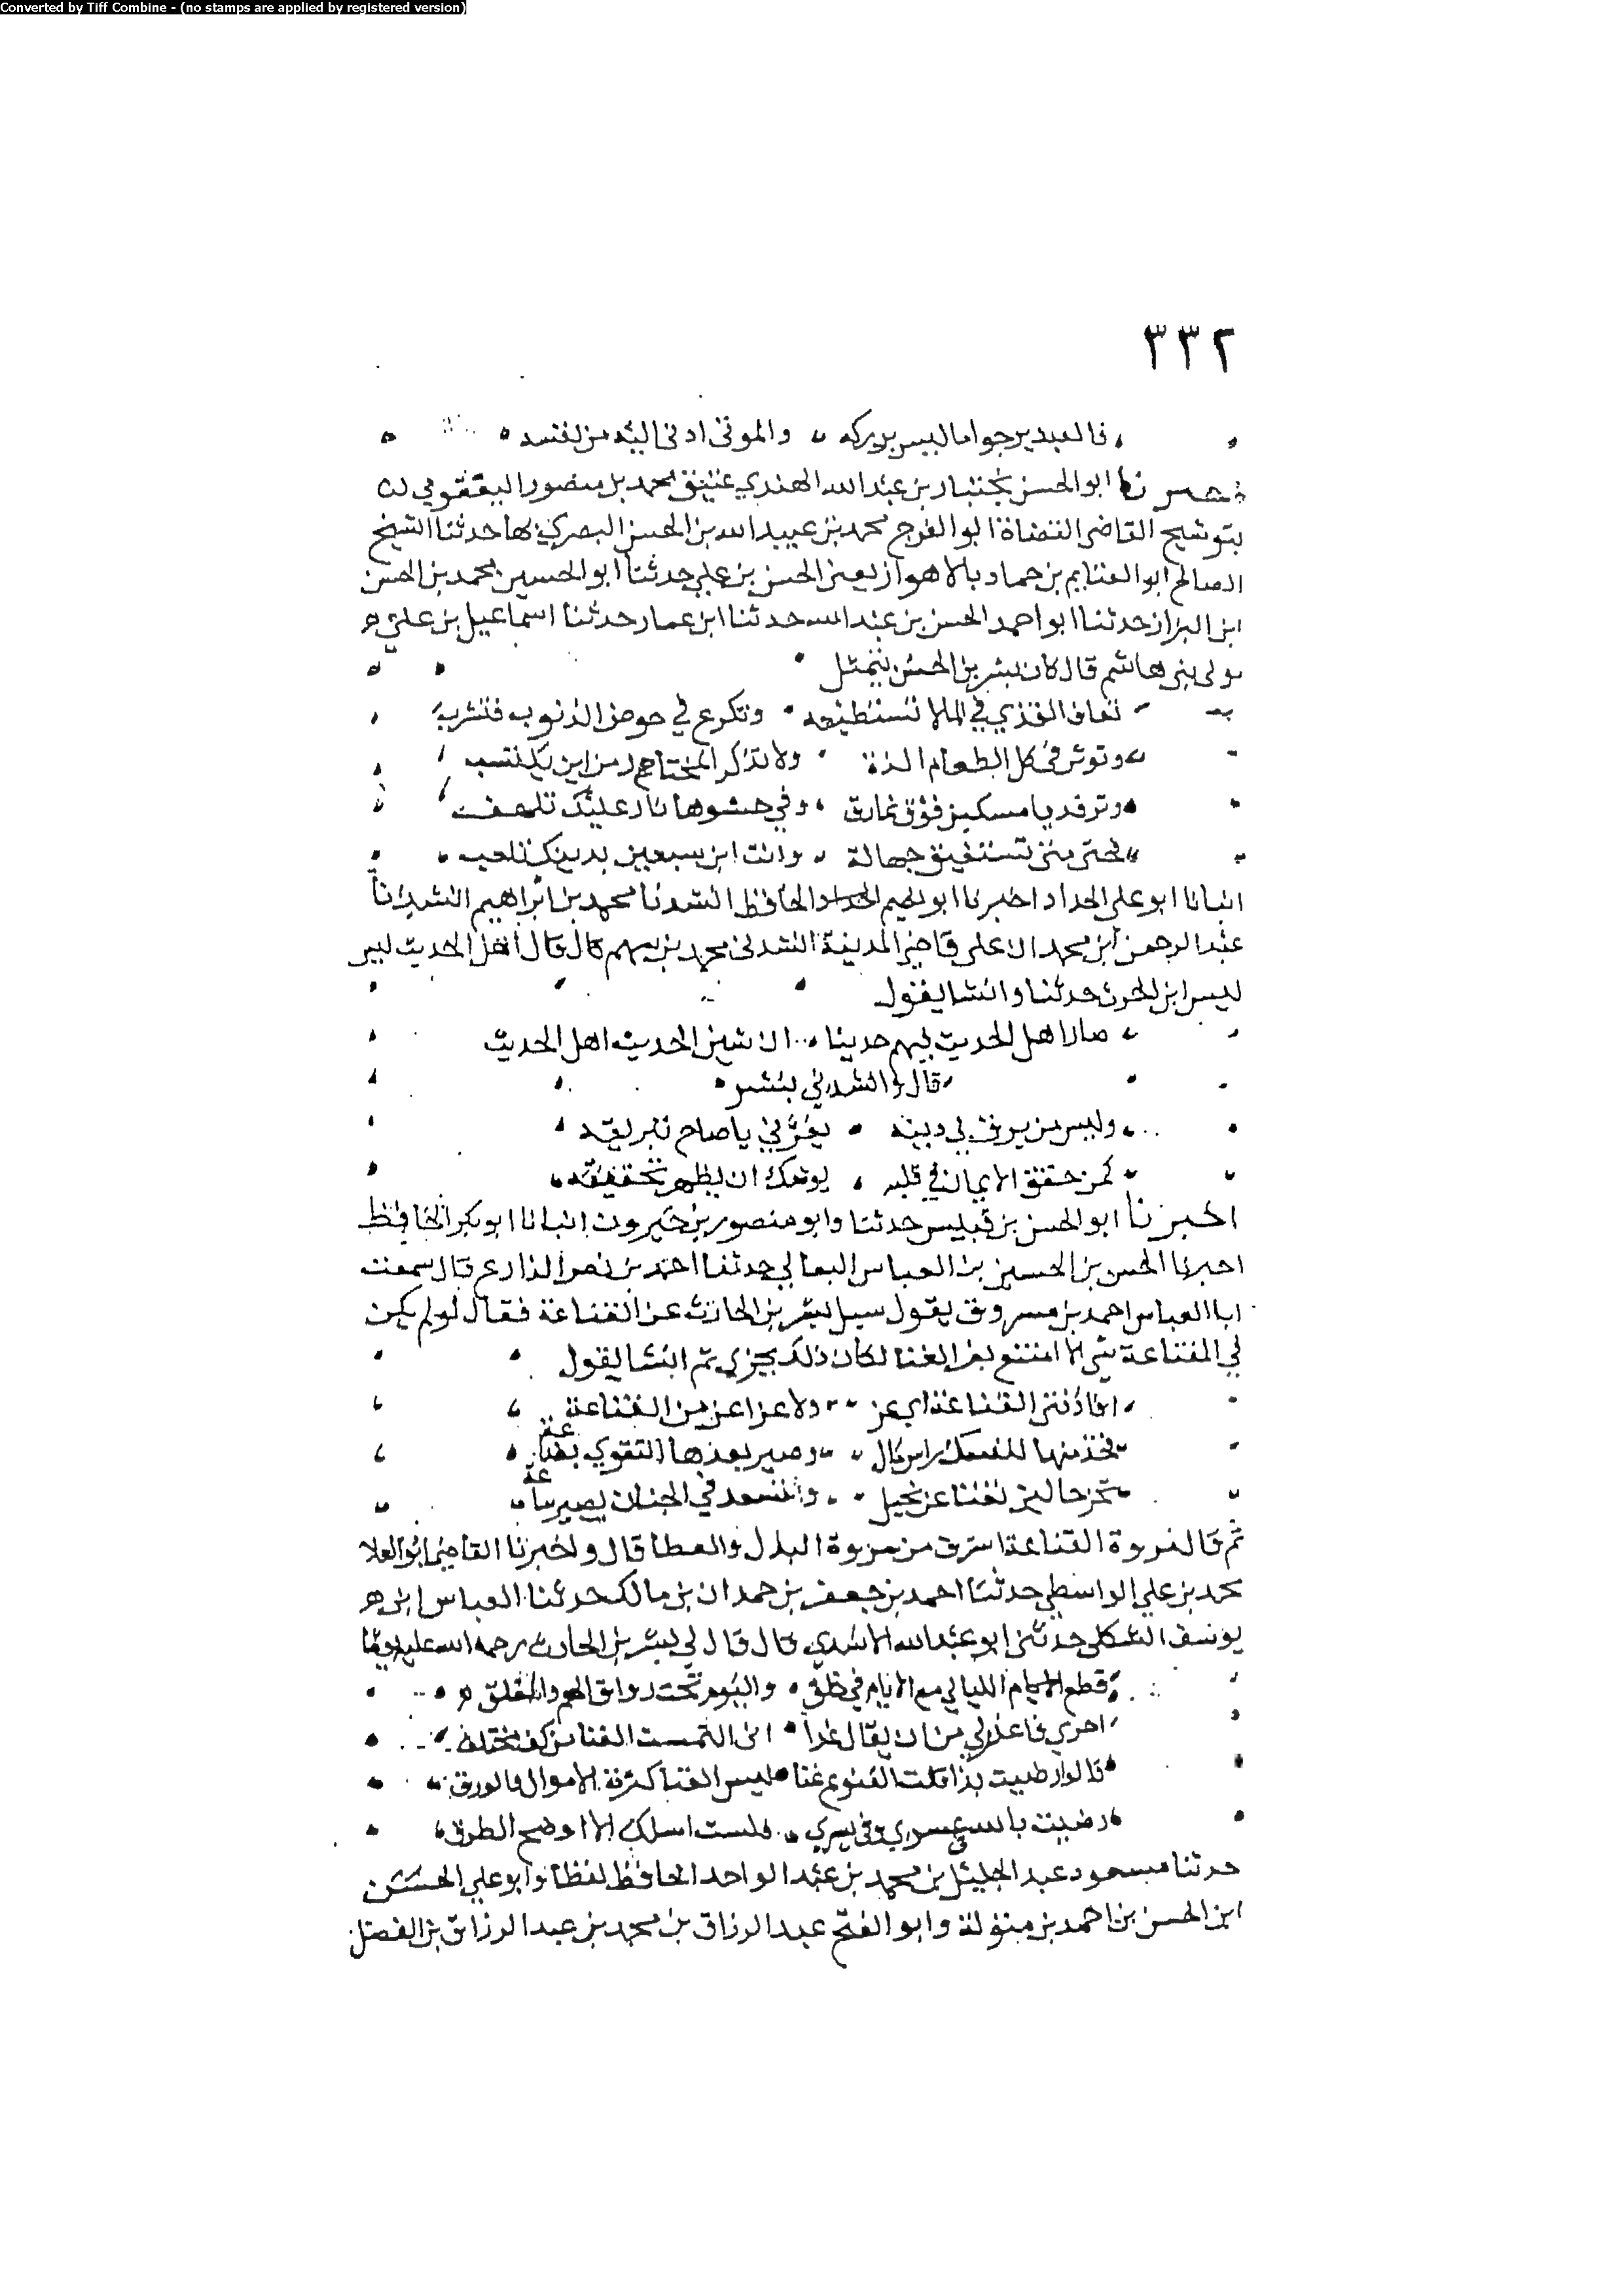 Converted by Tiff Combine - (no stamps are applied by registered version)
٣٣٢
فالعبد يرجوا ما ليس يدركه والموت ادنى اليه من نفسه
ابو الحسن بختيار بن عبد الله الهندي عتيق محمد بن منصور اليعقوبي
بتوشيح القاضي القضاة ابو الفرج محمد بن عبيد الله بن الحسن البصري بها حدثنا الشيخ
الصالح ابو الغنايم بن حماد بالاهواز يعني الحسن بن علي حدثنا ابو الحسين محمد بن الحسن
ابن البزاز حدثنا ابو احمد الحسن بن عبد الله حدثنا ابن عمار حدثنا اسماعيل بن علي
مولى بني هاشم قال كان بشر بن الحسن يتمثل
تعاف القذي في الما لا تستطيعه وتكرع في حوض الذنوب فتشرب
وتوثر في كل الطعام الذه ولا تذكر المختار من اين يكتسب
وترقد يا مسكين فوق نمارق وفي حشوها نار عليك تلهف
فحتى متى تستفيق جهالة وانت ابن سبعين بدينك تلعب
انبانا ابو علي الحداد اخبرنا ابو نعيم الحافظ انشدنا محمد بن ابراهيم انشدنا
عبد الرحمن ابن محمد الاعلى قاضي المدينة انشدني محمد بن سهم قال قال اهل الحديث لبشر
ليس ابن الحرث حدثنا وانشا يقول
صار اهل الحديث فيهم حديثا ان شين الحديث اهل الحديث
قال وانشدني بشر
وليس من يروق لي دينه يغرني يا صاح تبريقه
كمن حقق الايمان في قلبه يوشك ان يظهر تحقيقه
اخبرنا ابو الحسن بن قبيس حدثنا وابو منصور بن خيرون انبانا ابو بكر الحافظ
اخبرنا الحسن بن الحسين بن العباس النعالي حدثنا احمد بن نصر الذارع قال سمعت
ابا العباس احمد بن مسروق يقول سيل بشر بن الحارث عن القناعة فقال لو لم يكن
في القناعة شي الا التمتع بعز الغنا لكان ذلك يجزي ثم انشا يقول
افادتني القناعة اي عز ولا عزا عز من القناعة
فخذ منها لنفسك راس مال وصير بعدها التقوي بضاعة
تحز حالين تغنا عن بخيل وتسعد في الجنان بصبر ساعة
ثم قال مروة القناعة اشرف من مروة البذل والعطا قال واخبرنا القاضي ابو العلا
محمد بن علي الواسطي حدثنا احمد بن جعفر بن حمدان بن مالك حدثنا العباس ابن
يوسف الشكلي حدثني ابو عبد الله الاسدي قال قال لي بشر بن الحارث رحمه الله عليه يوما
قطع الليالي مع الايام في خلق والنوم تحت رواق الهم والقلق
احري فاعذر لي من ان يقال غدا اني التمست الغنا من كف مختلق
قالوا رضيت بذا قلت القنوع غنا ليس الغنا كثرة الاموال والورق
رضيت بالله في عسري وفي يسري فلست اسلك الا اوضح الطرق
حدثنا مسعود عبد الجليل بن محمد بن عبد الواحد الحافظ لفظا وابو علي الحسن
ابن الحسن بن احمد بن منولة وابو الفتح عبد الرزاق بن محمد بن عبد الرزاق بن الفضل